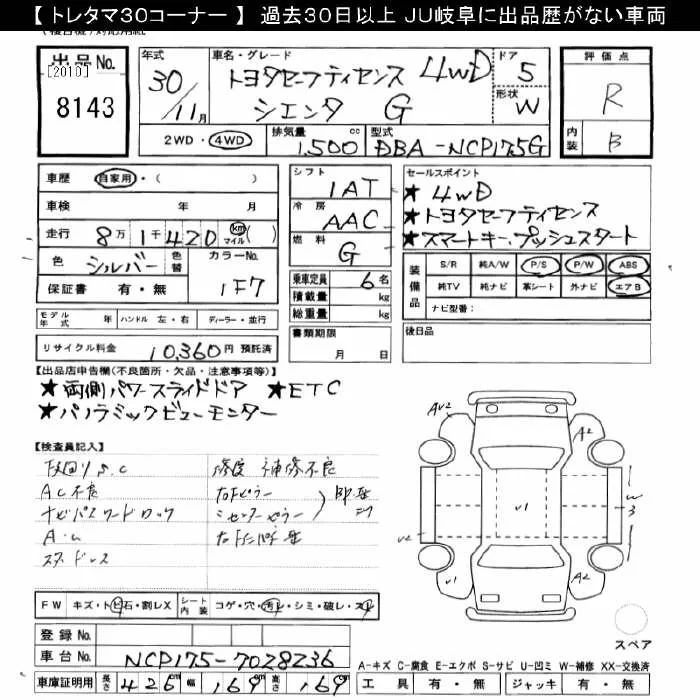 【 トレタマ30コーナー 】 過去30日以上 JU岐阜に出品歴がない車両
出品No. [2010] 8143
年式 30/11月
車名・グレード トヨタセーフティセンス 4WD シエンタ G
ドア 5
形状 W
評価点 R
内装 B
2WD・4WD 排気量 1,500 cc 型式 DBA-NCP175G
車歴 自家用・( )
車検 年 月
走行 8万1千420 km マイル ( )
色 シルバー 色替 カラーNo. 1F7
保証書 有・無
シフト 1AT
冷房 AAC
燃料 G
乗車定員 6名
積載量 kg
総重量 kg
書類期限 月 日
セールスポイント
★ 4WD
★トヨタセーフティセンス
★スマートキー、プッシュスタート
装備品 S/R 純A/W P/S P/W ABS
純TV 純ナビ 革シート 外ナビ エアB
ナビ型番:
後日品
モデル年式 年 ハンドル 左・右 ディーラー・並行
リサイクル料金 10,360円 預託済
【出品店申告欄(不良箇所・欠品・注意事項等)】
★両側パワースライドドア ★ETC
★パノラミックビューモニター
【検査員記入】
AC不良
ナビパスワードロック
スタッドレス
修復 補修不良
右Fピラー
右センターピラー
AU2
A2
U1
W3
U2
U1
A2
FW キズ・トビ石・割レX シート内装 コゲ・穴・汚レ・シミ・破レ・スレ
登録No.
車台No. NCP175-7028236
車庫証明用 長さ 426 幅 169 高さ 169
スペア
A-キズ C-腐食 E-エクボ S-サビ U-凹ミ W-補修 XX-交換済
工具 有・無 ジャッキ 有・無